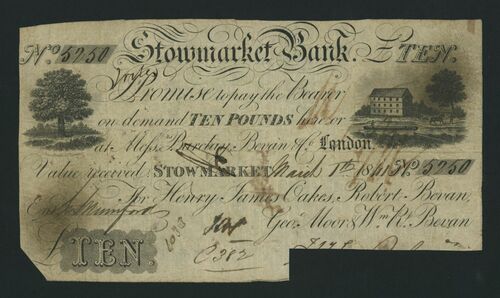 No 5750 Stowmarket Bank. £ TEN.
Promise to pay the Bearer
on demand TEN POUNDS here or
at Messrs Barclay, Bevan & Co. London
Value received STOWMARKET March 8th 1841 No 5750
For Henry James Oakes, Robert Bevan,
Entd Mumford Geoe Moor & Wm Rt Bevan
£ TEN.
C 382